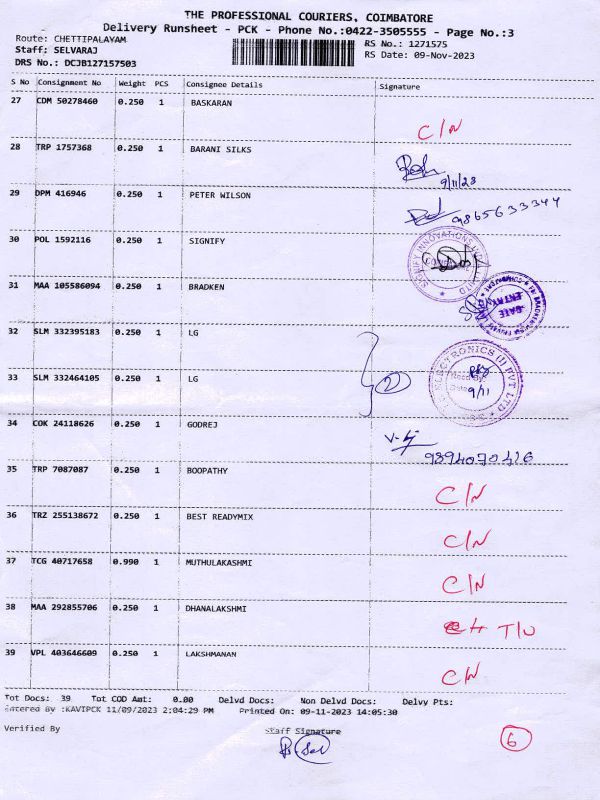 THE PROFESSIONAL COURIERS, COIMBATORE
Delivery Runsheet - PCK - Phone No.:0422-3505555 - Page No.:3
Route: CHETTIPALAYAM RS No.: 1271575
Staff: SELVARAJ RS Date: 09-Nov-2023
DRS No.: DCJB127157503
S No Consignment No Weight PCS Consignee Details Signature
27 CDM 50278460 0.250 1 BASKARAN
C/N
28 TRP 1757368 0.250 1 BARANI SILKS
9/11/23
29 DPM 416946 0.250 1 PETER WILSON
9865633344
30 POL 1592116 0.250 1 SIGNIFY
SIGNIFY INNOVATIONS
31 MAA 105586094 0.250 1 BRADKEN
GATE ENTRY
32 SLM 332395183 0.250 1 LG
2
33 SLM 332464105 0.250 1 LG
ELECTRONICS (I) PVT LTD
9/11
34 COK 24118626 0.250 1 GODREJ
9894070426
35 TRP 7087087 0.250 1 BOOPATHY
C/N
36 TRZ 255138672 0.250 1 BEST READYMIX
C/N
37 TCG 40717658 0.990 1 MUTHULAKASHMI
C/N
38 MAA 292855706 0.250 1 DHANALAKSHMI
T/U
39 VPL 403646609 0.250 1 LAKSHMANAN
C/N
Tot Docs: 39 Tot COD Amt: 0.00 Delvd Docs: Non Delvd Docs: Delvy Pts:
Entered By :KAVIPCK 11/09/2023 2:04:29 PM Printed On: 09-11-2023 14:05:30
Verified By Staff Signature
6